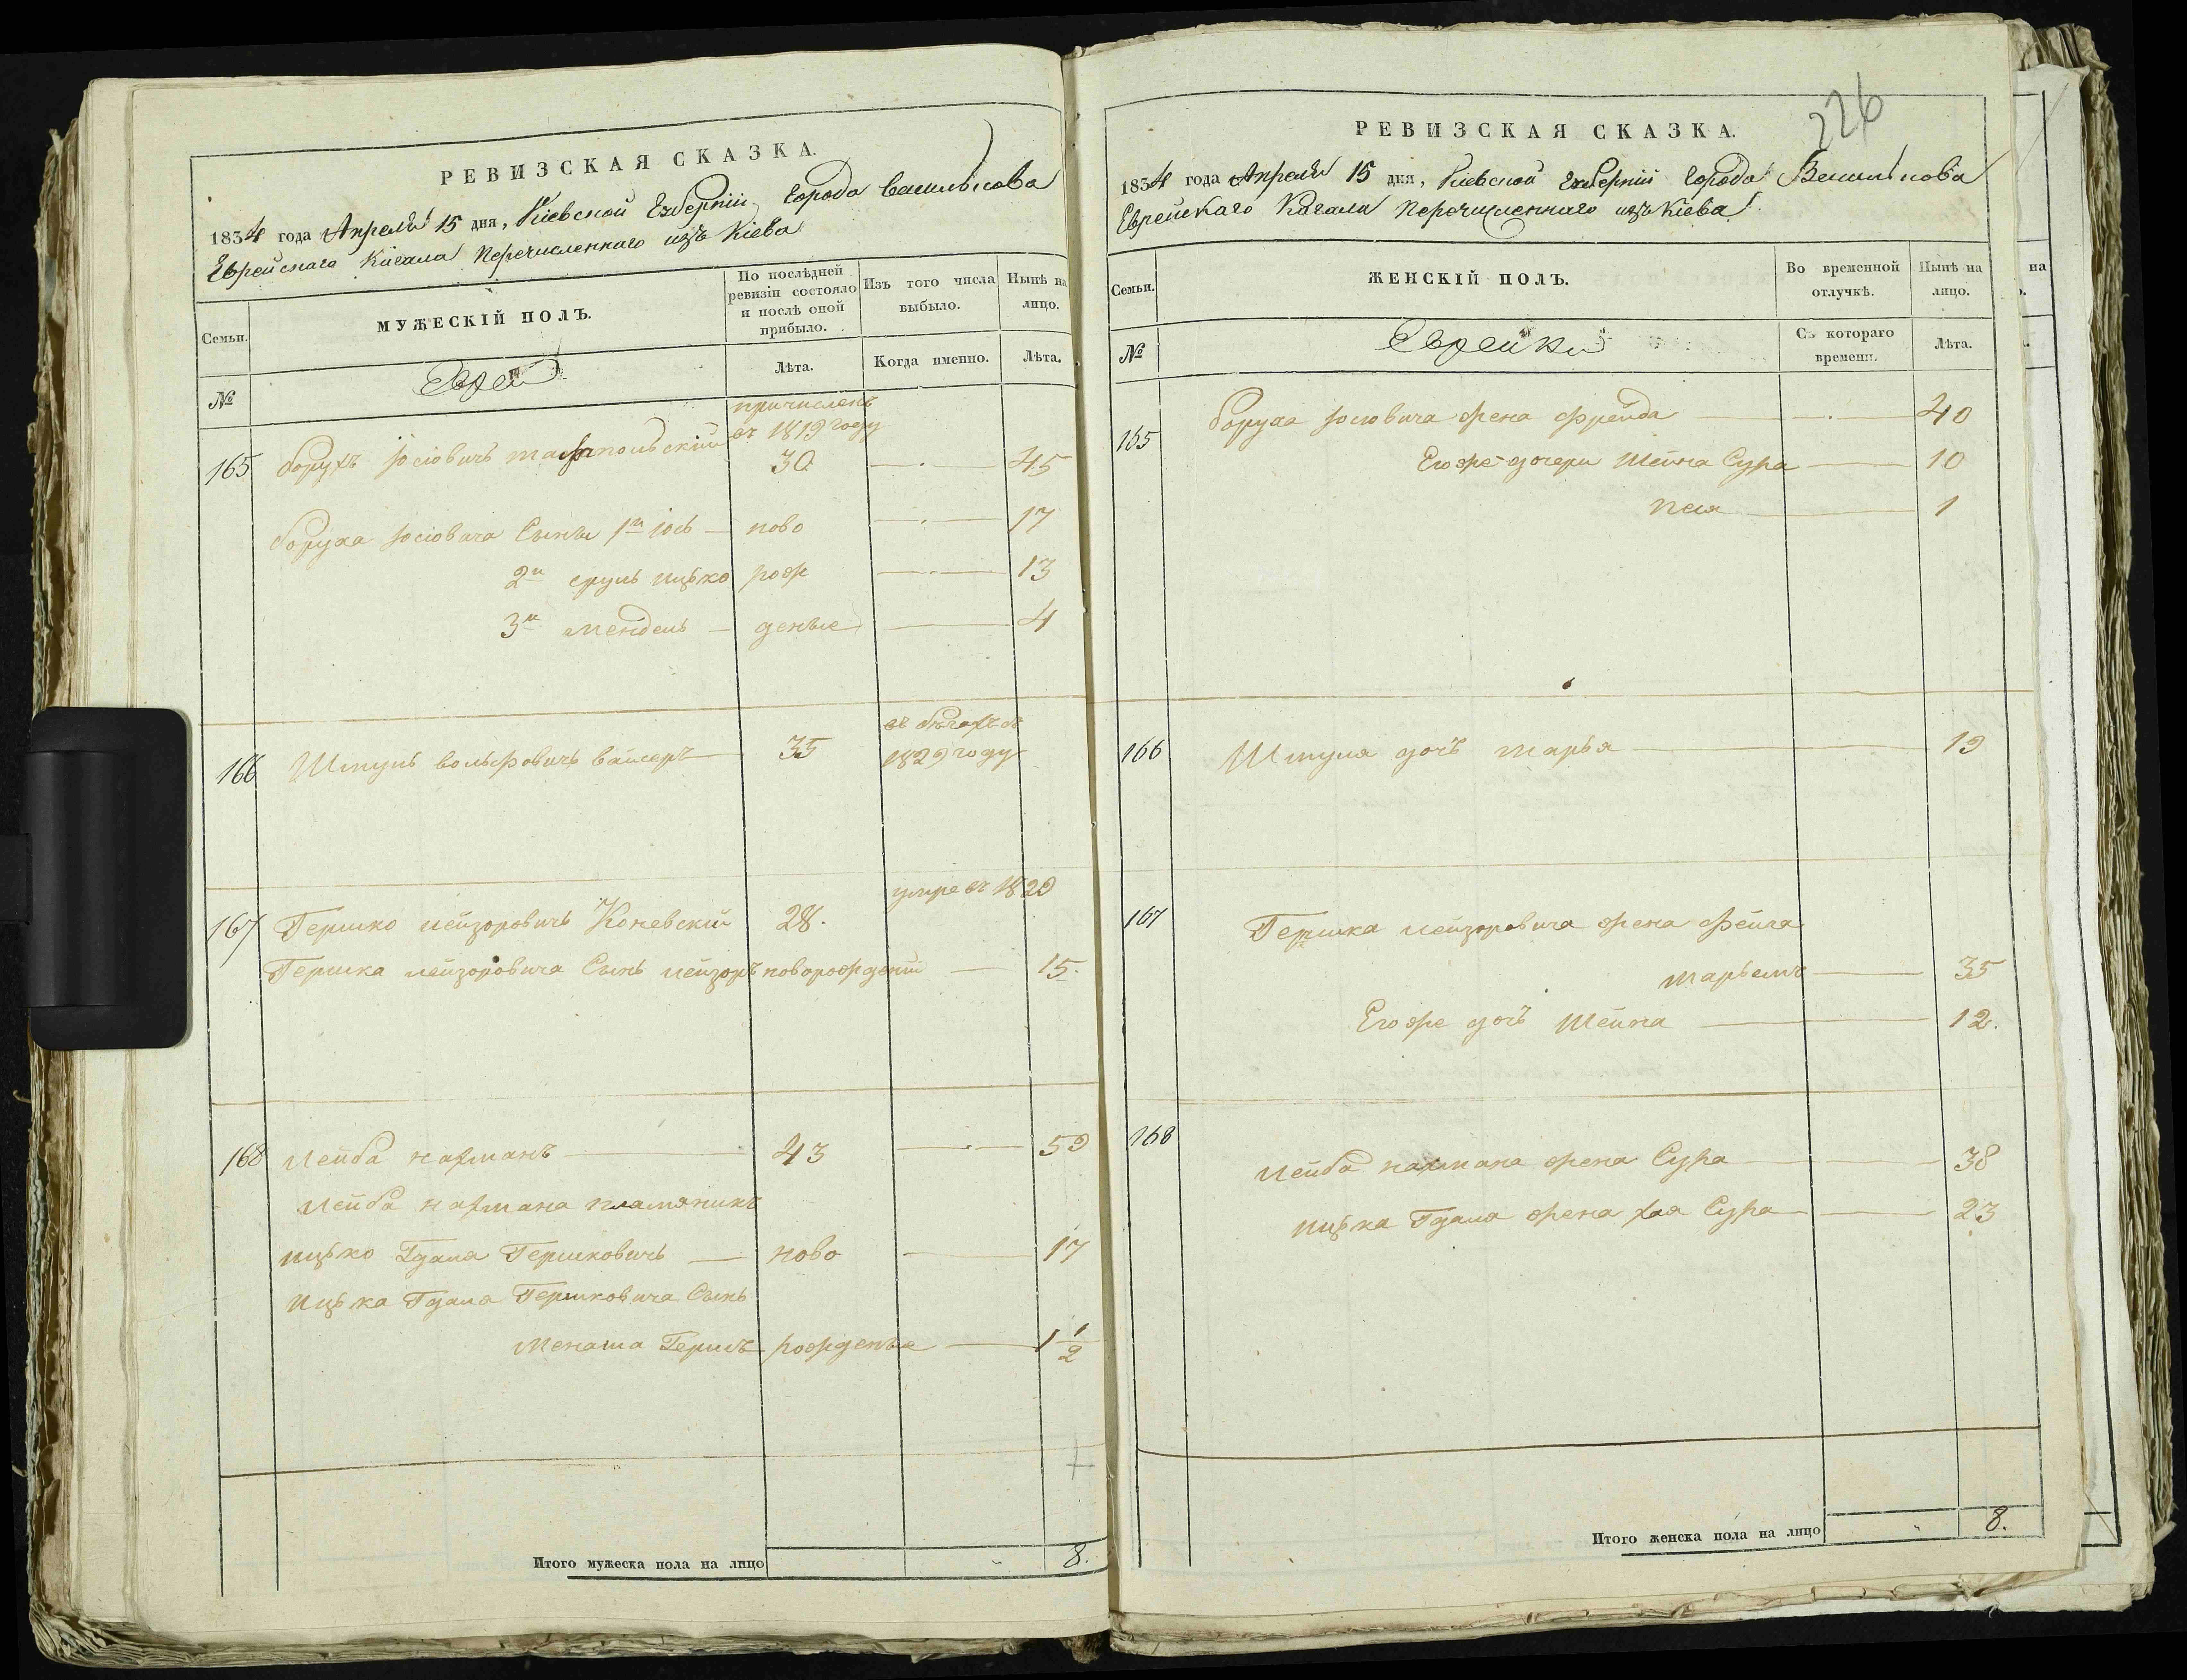 РЕВИЗСКАЯ СКАЗКА.
1834 года Апреля 15 дня, Кіевской Губерніи, Города Василькова
Еврейскаго Кагала Перечисленнаго изъ Кіева
Семьи.
МУЖЕСКІЙ ПОЛЪ.
По послѣдней ревизіи состояло и послѣ оной прибыло.
Изъ того числа выбыло.
Нынѣ на лицо.
№
Евреи
Лѣта.
Когда именно.
Лѣта.
причисленъ
въ 1819 году
165 Борухъ Іосіовичъ 30 45
Боруха Іосіовича Сынъи 1й Іось ново 17
2й срулъ ицько рож 13
3й Мендель деные 4
въ бѣгахъ съ
166 Шмуль вольфовичъ вайсеръ 35 1829 году
умре въ 1829
167 Гершко лейзоровичъ Коневскій 28.
Гершка лейзоровича Сынъ лейзоръ новорожденій 15.
168 Лейба нахманъ 43 59
Лейба нахмана пламяникъ
ицько Гдаля Гершковичъ ново 17
Ицька Гдаля Гершковича Сынъ
Менаша Гершъ рожденые 1 1/2
Итого мужеска пола на лицо 8.
226
РЕВИЗСКАЯ СКАЗКА.
1834 года Апреля 15 дня, Кіевской Губерніи Города Василькова
Еврейскаго Кагала Перечисленнаго изъ Кіева
Семьи.
ЖЕНСКІЙ ПОЛЪ.
Во временной отлучкѣ.
Нынѣ на лицо.
№
Еврейки
Съ котораго времени.
Лѣта.
165 Боруха Іосіовича жена Фрейда 40
Егоже дочери Шейна Сура 10
Песя 1
166 Шмуля дочъ Марья 19
167 Гершка лейзоровича жена Фейга
Марьемъ 35
Егоже дочъ Шейна 12.
168 Лейба нахмана жена Сура 38
ицька Гдаля жена хая Сура 23
Итого женска пола на лицо 8.
на